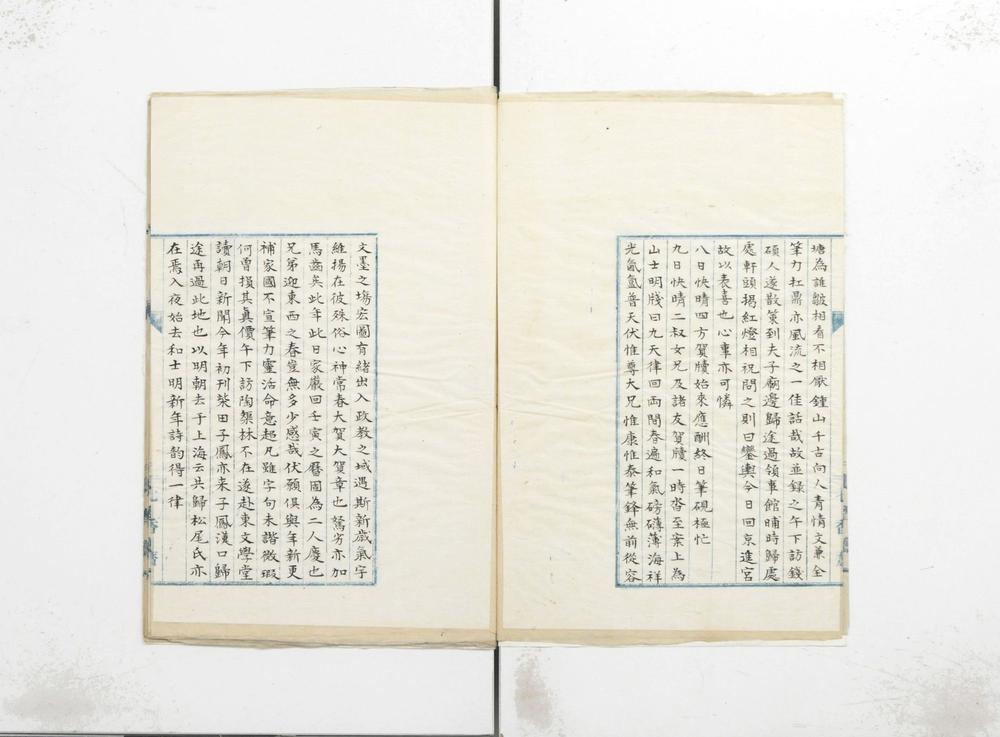 塘為誰皺相看不相厭鐘山千古向人青情文兼全
筆力扛鼎亦風流之一佳話哉故並録之午下訪錢
碩人遂散策到夫子廟邊歸途過領事館晡時歸處
處軒頭揭紅燈相祝問之則曰鑾輿今日回京進宮
故以表喜也心事亦可憐
八日快晴四方賀牘始來應酬終日筆硯極忙
九日快晴二叔女兄及諸友賀牘一時沓至案上為
山士明牋曰九天律回両間春遍和氣磅礴薄海祥
光氤氳普天伏惟尊大兄惟康惟泰筆鋒無前從容
文墨之場宏圖有緒出入政教之域遇斯新歲氣字
維揚在彼殊俗心神常春大賀大賀章也駑劣亦加
馬齒矣此年此日家嚴回壬寅之曆固為二人慶也
兄弟迎東西之春豈無多少感哉伏願俱與年新更
補家國不宣筆力靈活命意超凡雖字句未諧微瑕
何曾損其真價午下訪陶榘林不在遂赴東文學堂
讀朝日新聞今年初刊柴田子鳳亦来子鳳漢口歸
途再過此地也以明朝去于上海云共歸松尾氏亦
在焉入夜始去和士明新年詩韵得一律